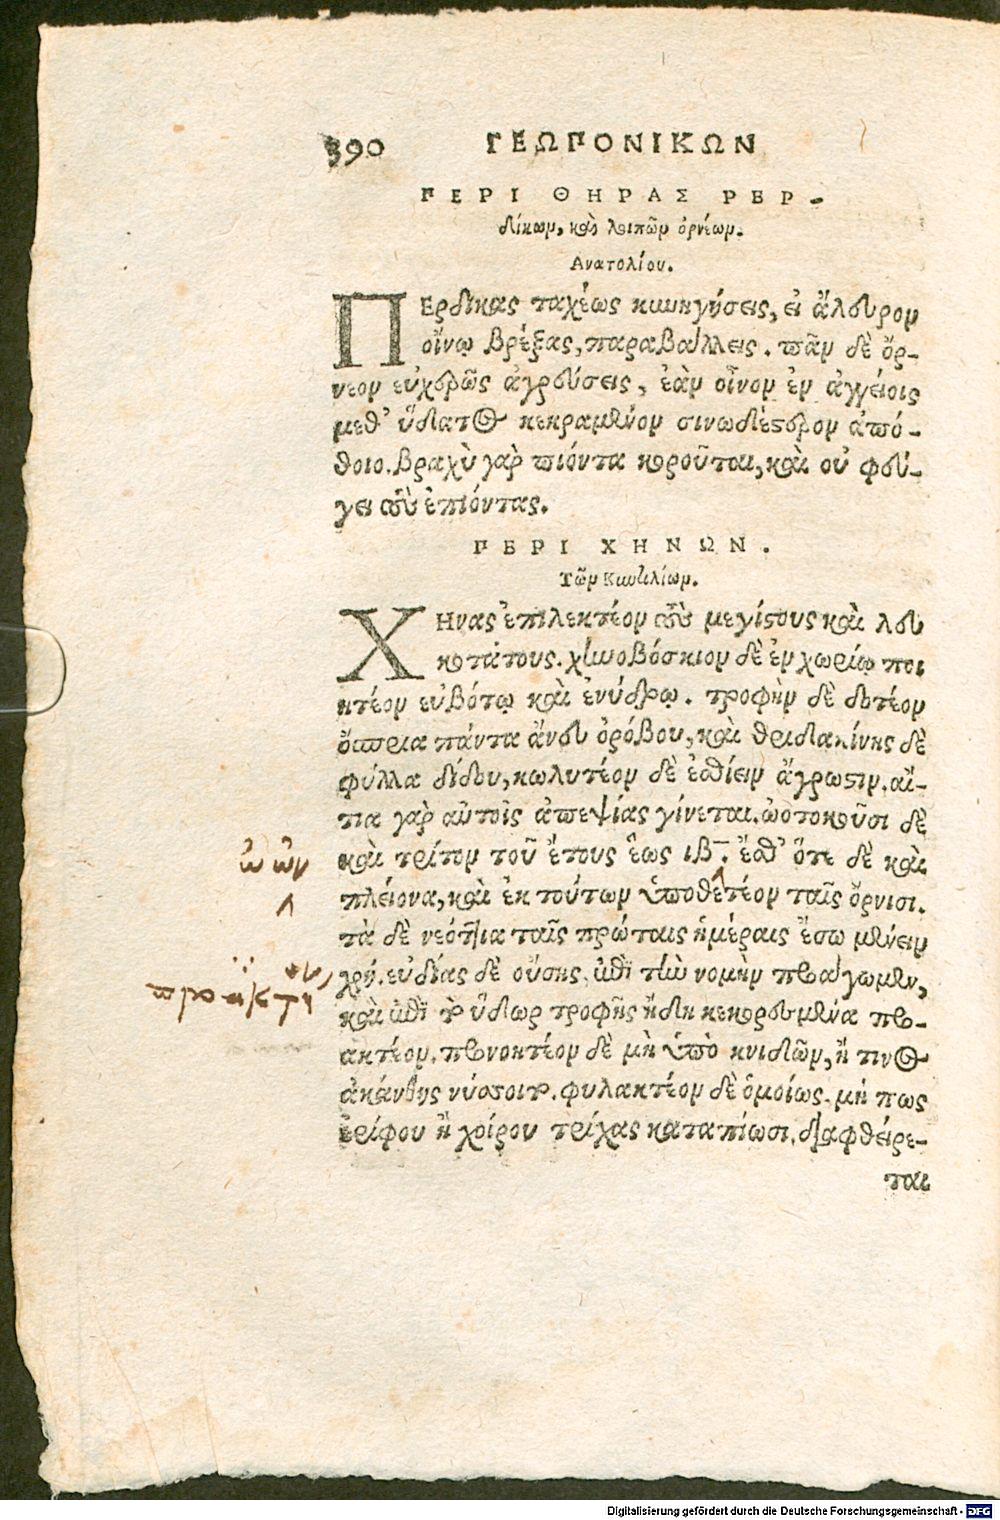 390 ΓΕΩΠΟΝΙΚΩΝ
ΠΕΡΙ ΘΗΡΑΣ ΡΕΡ-
δίκων, καὶ λοιπῶν ὀρνέων.
Ανατολίου.
ΠΕρδικας ταχέως κυνηγήσεις, εἰ ἄλευρον
οἴνῳ βρέξας, παραβάλλεις. πᾶν δὲ ὄρ-
νεον εὐχερῶς ἀγρεύσεις, ἐὰν οἶνον ἐν ἀγγείοις
μεθ' ὕδατος κεκραμένον σινωδιέστερον ἀπό-
θοιο. βραχὺ γὰρ πιόντα καροῦται, καὶ οὐ φεύ-
γει τοὺς ἐπιόντας.
ΠΕΡΙ ΧΗΝΩΝ.
Τῶν Κυντιλίων.
ΧΗνας ἐπιλεκτέον τοὺς μεγίστους καὶ λευ
κοτάτους. χηνοβόσκιον δὲ ἐν χωρίῳ ποι
ητέον εὐβότῳ καὶ ἐνύδρῳ. τροφὴν δὲ δοτέον
ὄσπρια πάντα ἄνευ ὀρόβου, καὶ θριδακίνης δὲ
φύλλα δίδου, κωλυτέον δὲ ἐσθίειν ἄγρωστιν. αἴ-
τια γὰρ αὐτοῖς ἀπεψίας γίνεται. ὠοτοκοῦσι δὲ
καὶ τρίτον τοῦ ἔτους ἕως ιβ. ἔσθ' ὅτε δὲ καὶ
ὠ ὠν
πλείονα, καὶ ἐκ τούτων ὑποθετέον ταῖς ὄρνισι.
τὰ δὲ νεόττια ταῖς πρώταις ἡμέραις ἔσω μένειν
χρή. εὐδίας δὲ οὔσης, ἐπὶ τὴν νομὴν προάγωμεν,
καὶ ἐπὶ τὸ ὕδωρ τροφῆς ἤδη κεκορευμένα προ-
ακτέον. προνοητέον δὲ μὴ ὑπὸ κνιδῶν, ἤ τινος
ἀκάνθης νύσσοιτο. φυλακτέον δὲ ὁμοίως. μή πως
ἐρίφου ἢ χοίρου τρίχας καταπίωσι. διαφθείρε-
ται
Digitalisierung gefördert durch die Deutsche Forschungsgemeinschaft - DFG